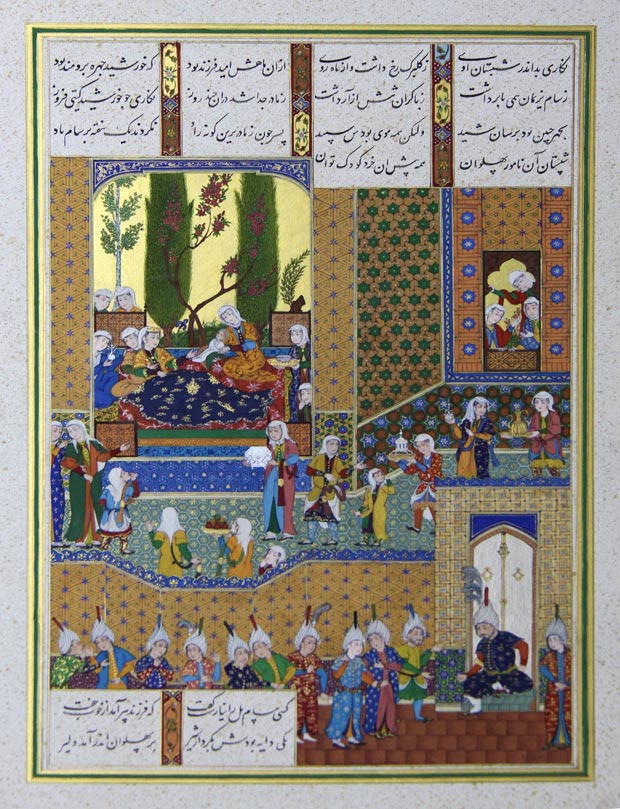 نگاری بد اندر شبستان اوی ز گلبرگ رخ داشت و از ماه روی ازان ماهش امید فرزند بود که خورشید چهره برومند بود
ز سام نریمان همی بار داشت ز بار گران تنش آزار داشت ز مادر جدا شد دران چند روز نگاری چو خورشید گیتی فروز
بچهر چنین بود برسان شید ولیکن همه موی بودش سپید پسر چون ز مادر برین گونه زاد نکردند یک هفته بر سام یاد
شبستان آن نامور پهلوان همه پیش آن خرد کودک نوان
کسی سام یل را نیارست گفت که فرزند پیر آمد از خوب جفت
یکی دایه بودش بکردار شیر بر پهلوان اندر آمد دلیر